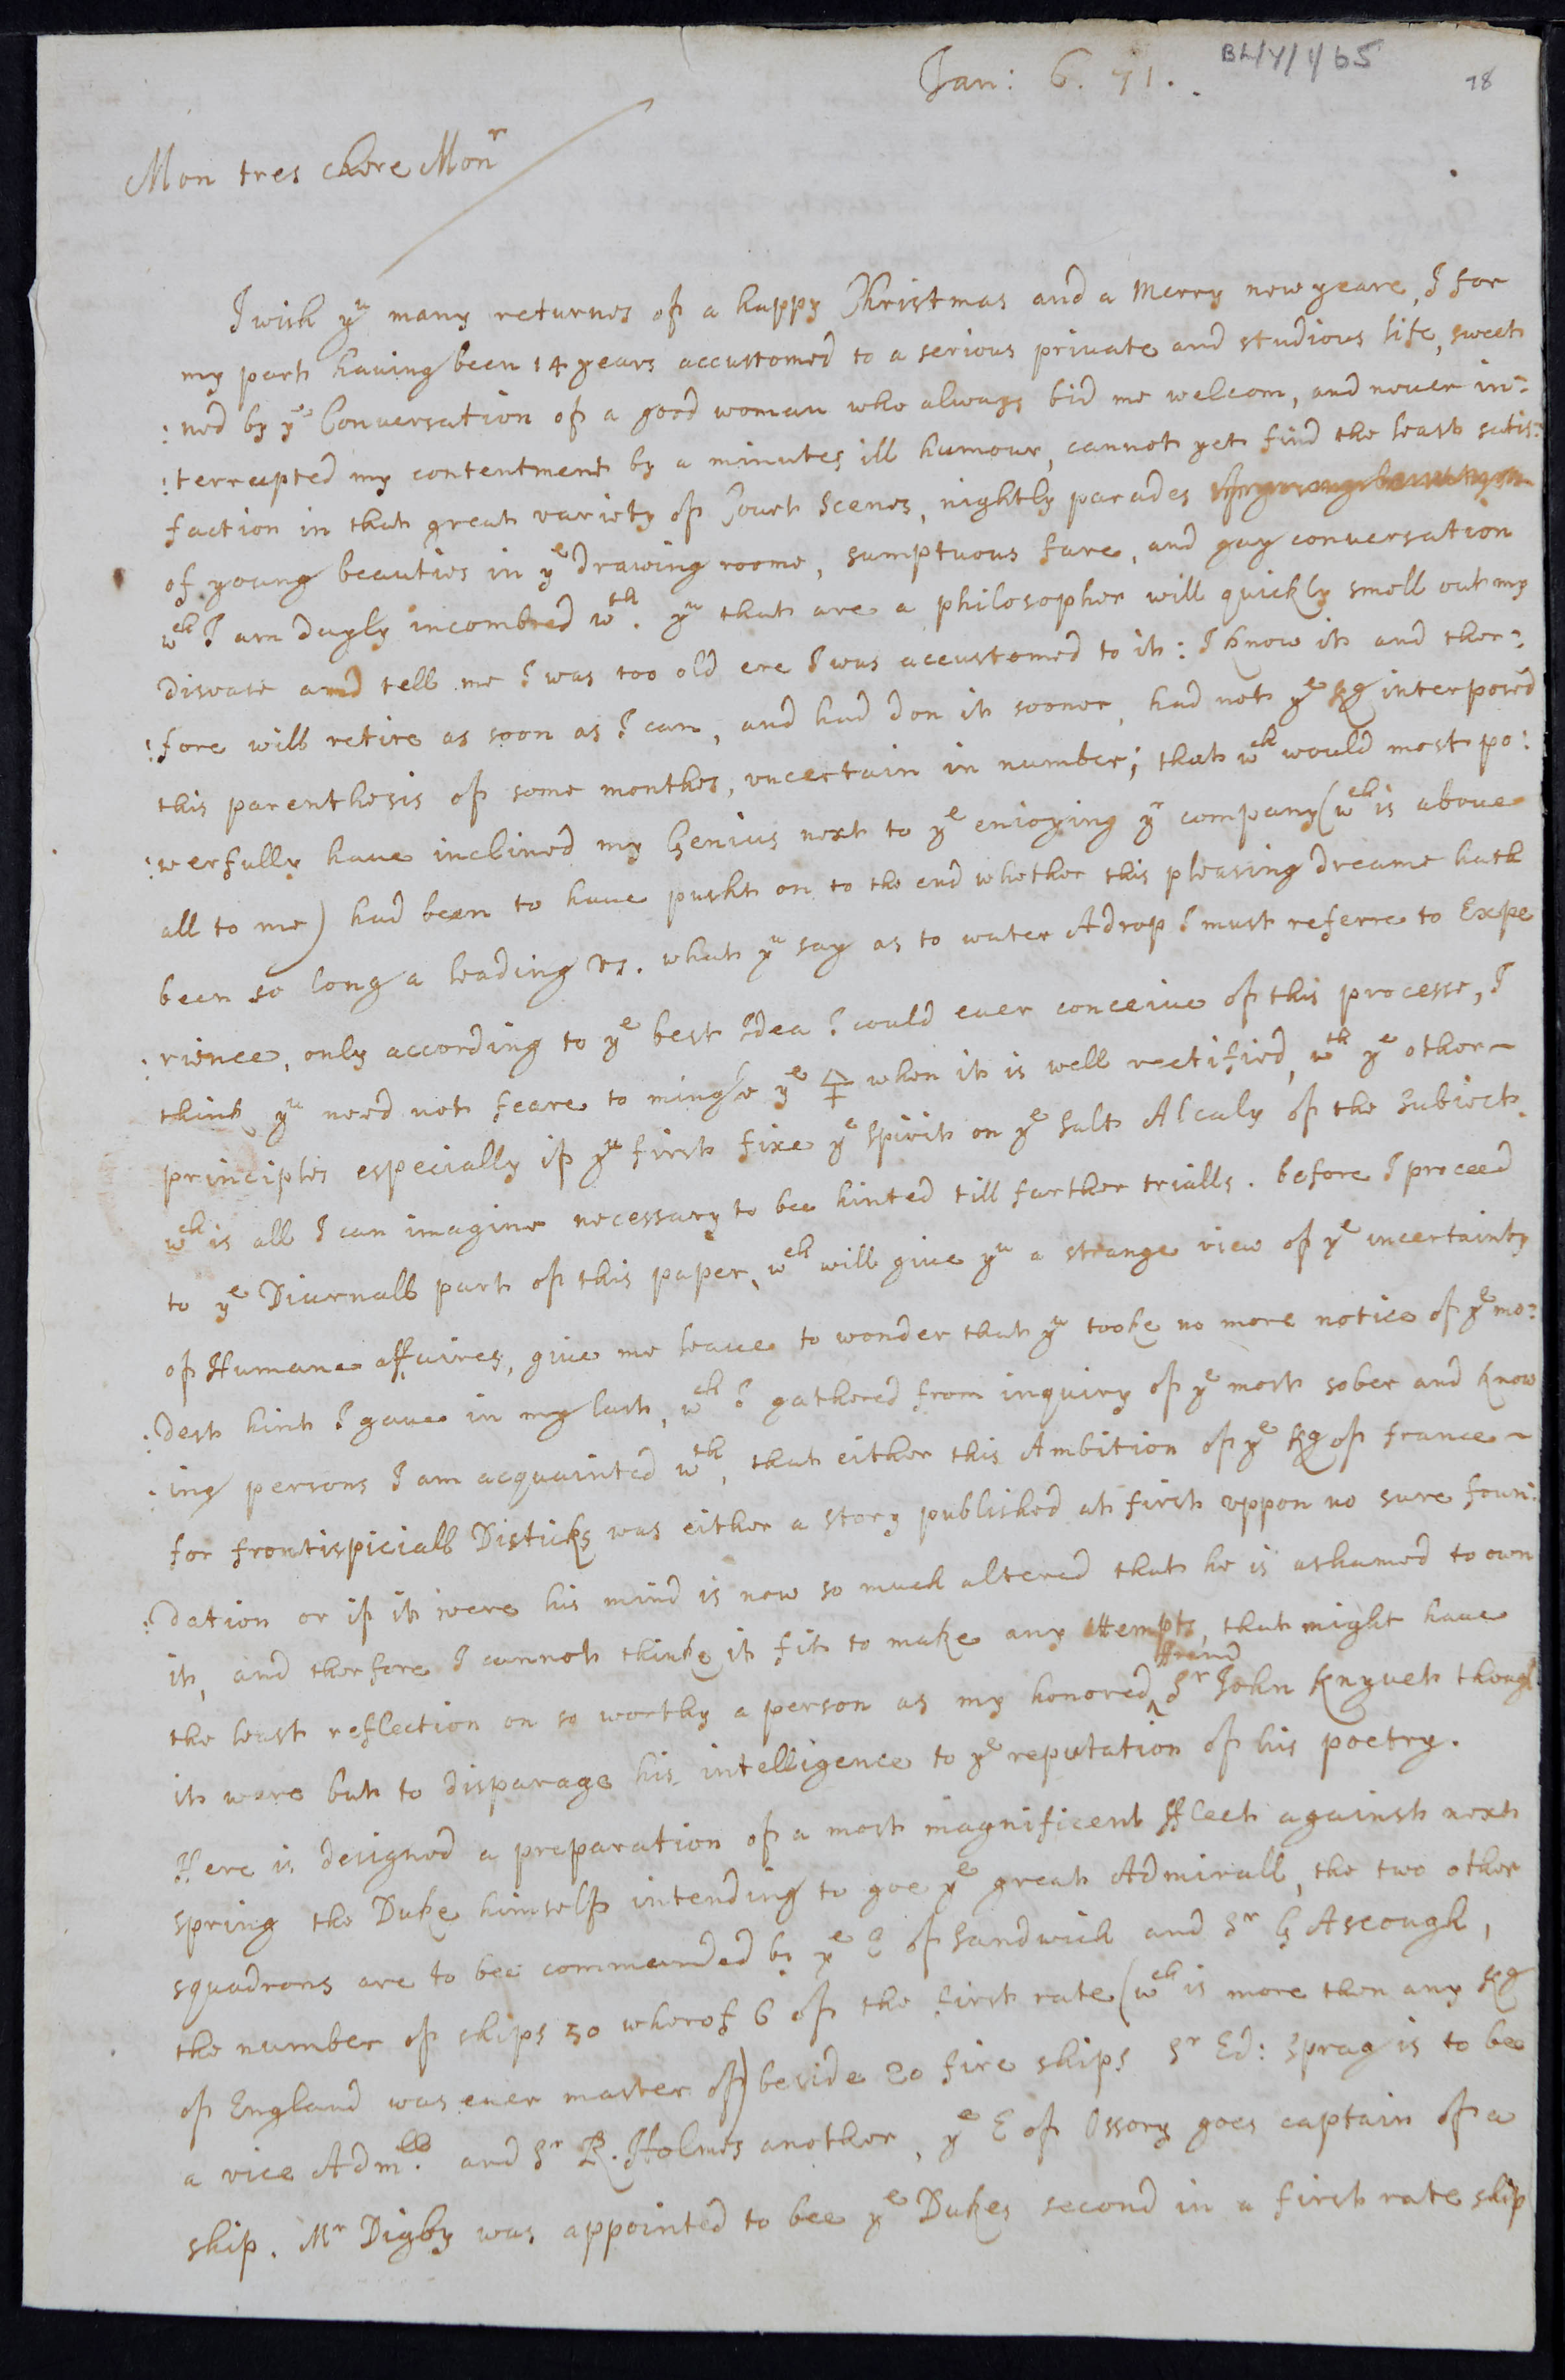 Jan: 6. 71. BL/Y/1/65 78
Mon tres chere Monr
I wish yu many returnes of a happy Christmas and a Merry new yeare, I for
my part having been 14 years accustomed to a serious private and studious life, sweet
:ned by ye Conversation of a good woman who always bid me welcom, and never in:
:terrupted my contentment by a minutes ill humour, cannot yet find the least satis:
faction in that great variety of Court Scenes, nightly parades
of young beauties in ye Drawing roome, sumptuous fare, and gay conversation
wch I am dayly incombred wth. yu that are a philosopher will quickly smell out my
disease and tell me I was too old ere I was accustomed to it: I know it and ther:
:fore will retire as soon as I can, and had don it sooner, had not ye Kg interposed
this parenthesis of some monthes, uncertain in number; that wch would most po:
:werfully have inclined my Genius next to ye enioying yr company (wch is above
all to me) had been to have pusht on to the end whether this pleasing dreame hath
been so long a leading us. what yu say as to water Adrop I must referre to Expe
:rience, only according to ye best Idea I could ever conceive of this processe, I
think yu need not feare to mingle ye 🜍 when it is well rectified, wth ye other
principles especially if yu first fixe ye Spirit on ye Salt Alcaly of the Subiect.
wch is all I can imagine necessary to bee hinted till farther trialls. before I proceed
to ye Diurnall part of this paper, wch will give yu a strange view of ye incertainty
of Humane affaires, give me leave to wonder that yu tooke no more notice of ye mo:
:dest hint I gave in my last, wch I gathered from inquiry of ye most sober and know
:ing persons I am acquainted wth, that either this Ambition of ye Kg of france
for frontispiciall Disticks was either a story published at first uppon no sure foun:
:dation or if it were his mind is now so much altered that he is ashamed to own
it, and therfore I cannot thinke it fit to make any attempts, that might have
the least reflection on so worthy a person as my honored ^ffreind Sr John Knyvet though
it were but to disparage his intelligence to ye reputation of his poetry.
Here is designed a preparation of a most magnificent ffleet against next
spring the Duke himself intending to goe ye great Admirall, the two other
squadrons are to bee commanded by ye E of Sandwich and Sr G Ascough,
the number of ships 50 wherof 6 of the first rate (wch is more then any Kg
of England was ever master of) beside 20 fire ships Sr Ed: Sprag is to bee
a vice Admll. and Sr R. Holmes another, ye E of Ossory goes captain of a
ship. Mr Digby was appointed to bee ye Dukes second in a first rate ship